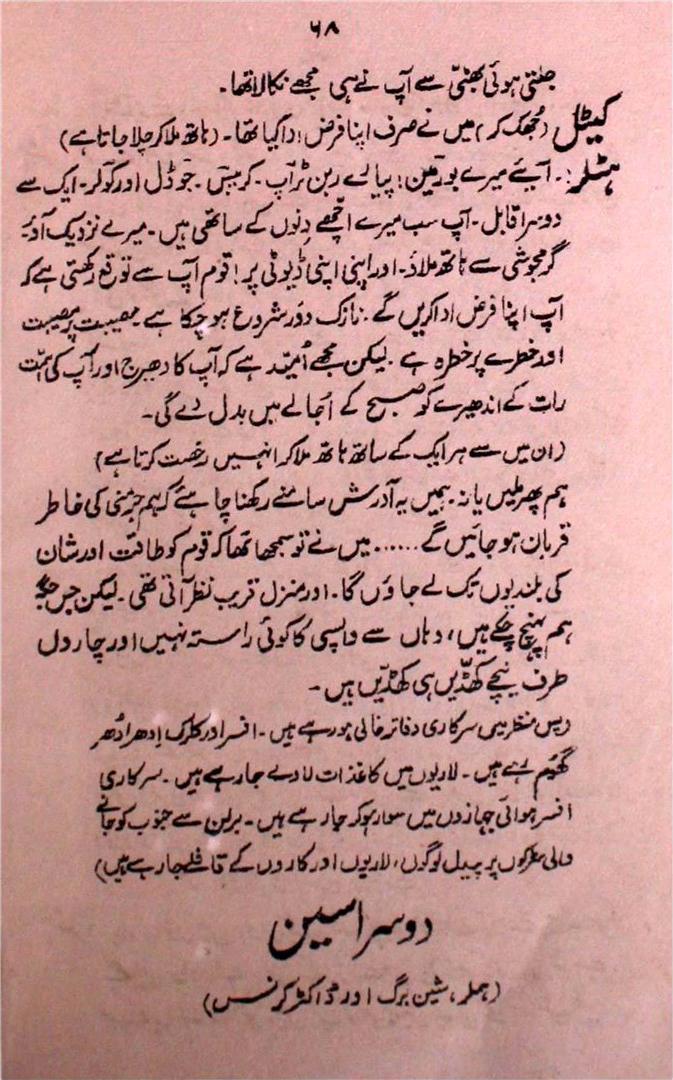 ۶۸
جلتی ہوئی بھٹی سے آپ نے ہی مجھے نکالا تھا۔
کیٹل (جُھک کر) میں نے صرف اپنا فرض ادا کیا تھا۔ (ہاتھ ملا کر چلا جاتا ہے)
ہٹلر:۔ آیئے میرے بورمین! پیالے ربن ٹراپ۔ کربس۔ جوڈل اور کولر۔ ایک سے
دوسرا قابل۔ آپ سب میرے اچھے دِنوں کے ساتھی ہیں۔ میرے نزدیک آؤ۔
گرمجوشی سے ہاتھ ملاؤ۔ اور اپنی اپنی ڈیوٹی پر! قوم آپ سے توقع رکھتی ہے کہ
آپ اپنا فرض ادا کریں گے۔ نازک دَور شروع ہو چکا ہے۔ مصیبت پر مصیبت
اور خطرے پر خطرہ ہے۔ لیکن مجھے اُمید ہے کہ آپ کا دھیرج اور آپ کی ہمّت
رات کے اندھیرے کو صبح کے اُجالے میں بدل دے گی۔
(ان میں سے ہر ایک کے ساتھ ہاتھ ملا کر انہیں رخصت کرتا ہے)
ہم پھر ملیں یا نہ۔ ہمیں یہ آدرش سامنے رکھنا چاہئے کہ ہم جرمنی کی خاطر
قربان ہو جائیں گے ...... میں نے تو سمجھا تھا کہ قوم کو طاقت اور شان
کی بلندیوں تک لے جاؤں گا۔ اور منزل قریب نظر آتی تھی۔ لیکن جس جگہ
ہم پہنچ چکے ہیں، وہاں سے واپسی کا کوئی راستہ نہیں اور چاروں
طرف نیچے کھڈّیں ہی کھڈّیں ہیں۔
(پس منظر میں سرکاری دفاتر خالی ہو رہے ہیں۔ افسر اور کلرک اِدھر اُدھر
گھوم رہے ہیں۔ لاریوں میں کاغذات لادے جا رہے ہیں۔ سرکاری
افسر ہوائی جہازوں میں سوار ہو کر جا رہے ہیں۔ برلن سے جنوب کو جانے
والی سڑکوں پر پیدل لوگوں، لاریوں اور کاروں کے قافلے جا رہے ہیں)
دوسرا سین
(ہملر، شین برگ اور ڈاکٹر کرنس)